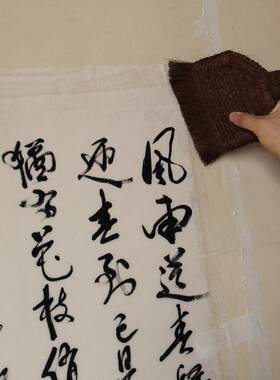 風雨送春歸
迎春到已是
猶有花枝俏